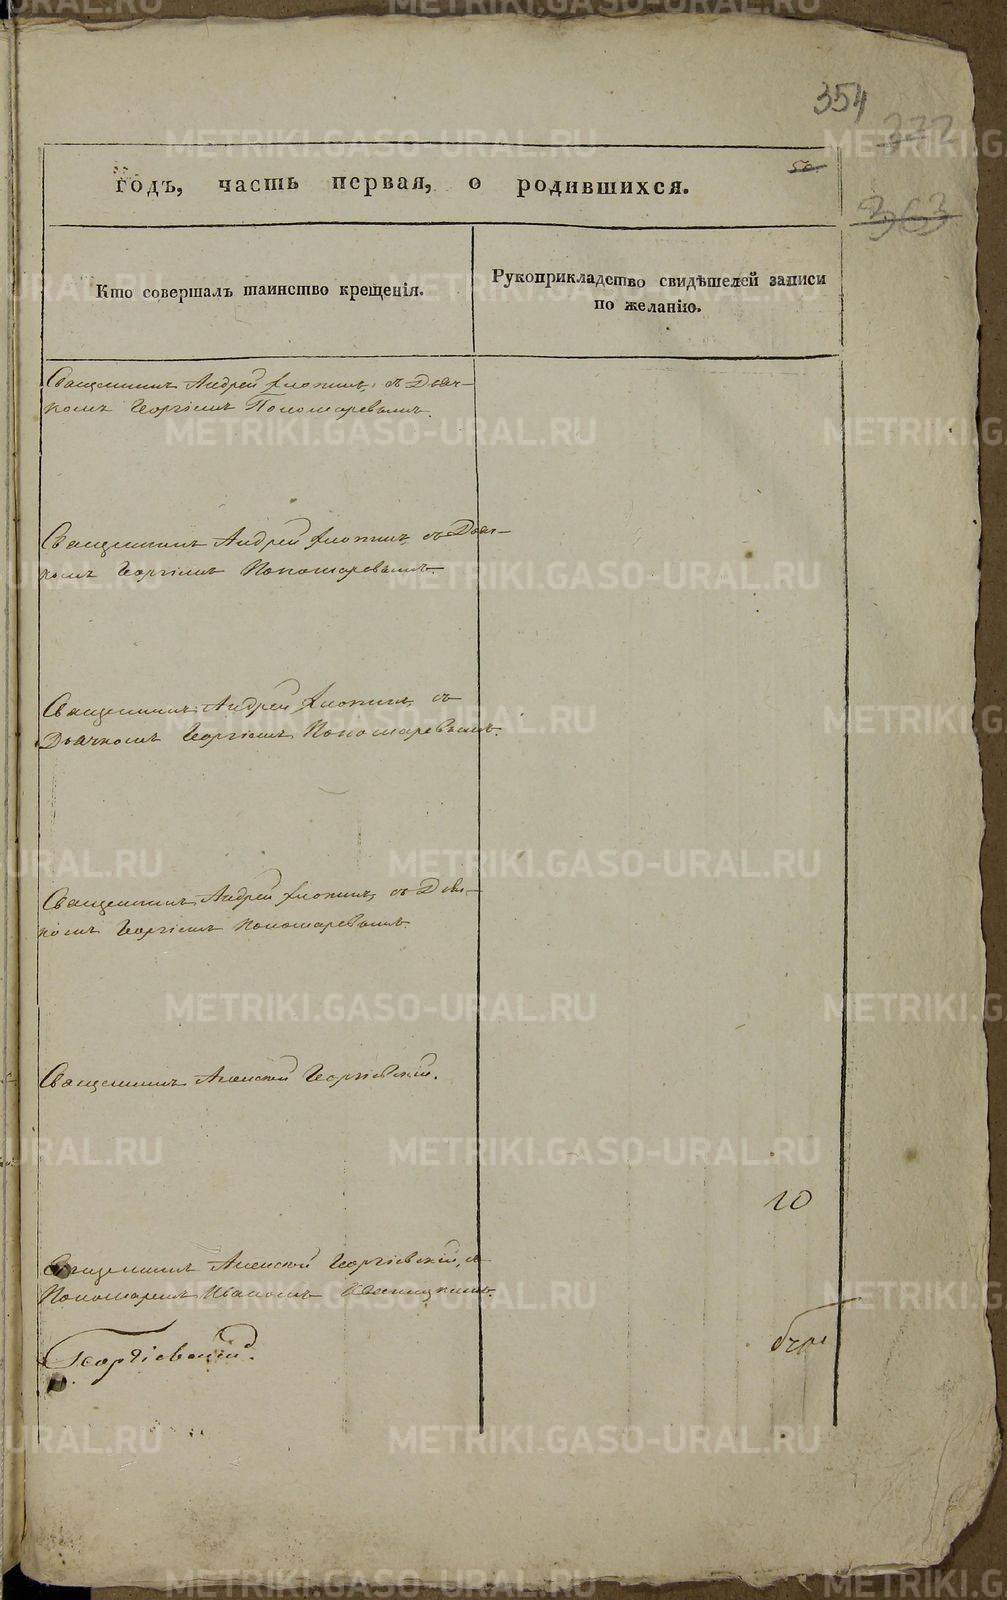 354
372
363
годъ, часть первая, о родившихся.
Кто совершалъ таинство крещенія.
Рукоприкладство свидѣтелей записи
по желанію.
Священникъ Андрей съ Дьяч-
комъ Георгіемъ Пономаревымъ.
Священникъ Андрей съ Дьяч-
комъ Георгіемъ Пономаревымъ.
Священникъ Андрей съ
Дьячкомъ Георгіемъ Пономаревымъ.
Священникъ Андрей съ Дьяч-
комъ Георгіемъ Пономаревымъ.
Священникъ Алексей Георгіевскій.
10
Священникъ Алексей Георгіевскій, съ
Пономаремъ Иваномъ
Георгіевскій.
METRIKI.GASO-URAL.RU